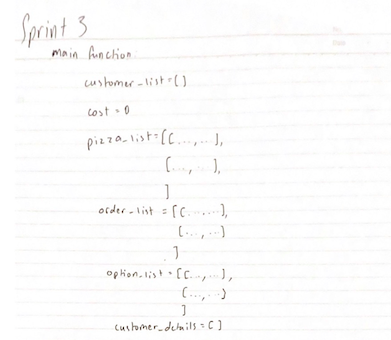 Sprint 3
main function
customer_list=[]
cost = 0
pizza_list=[[...,...],
[...,...],
]
order_list = [[...,...],
[...,...]
]
option_list = [[...,...],
[...,...]
]
customer_details = []